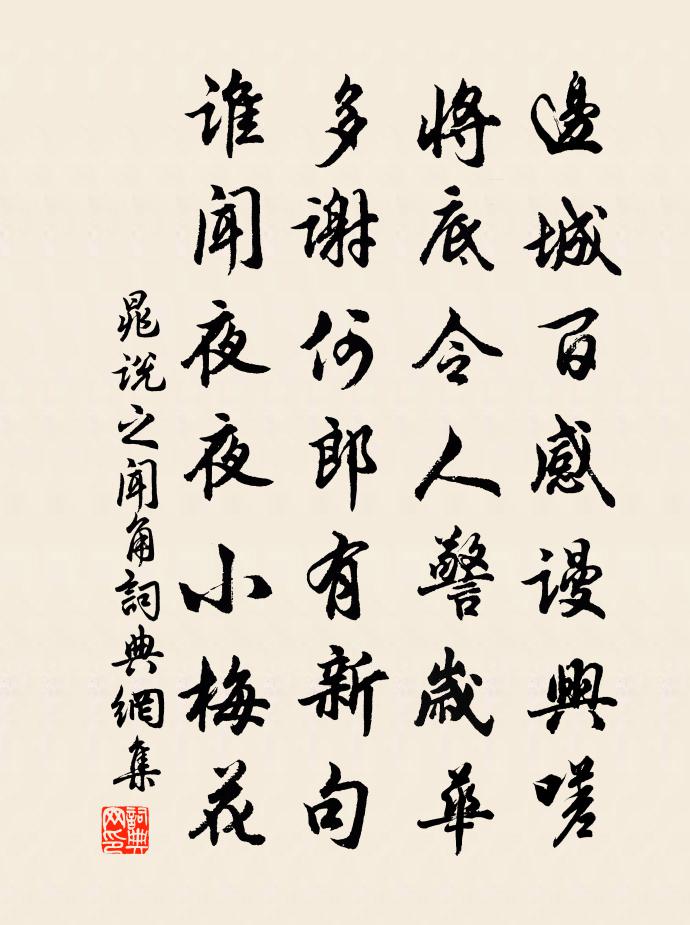 邊城百感謾興嗟
將底令人警歲華
多謝何郎有新句
誰聞夜夜小梅花
晁說之聞角詞典網集
詞典网印